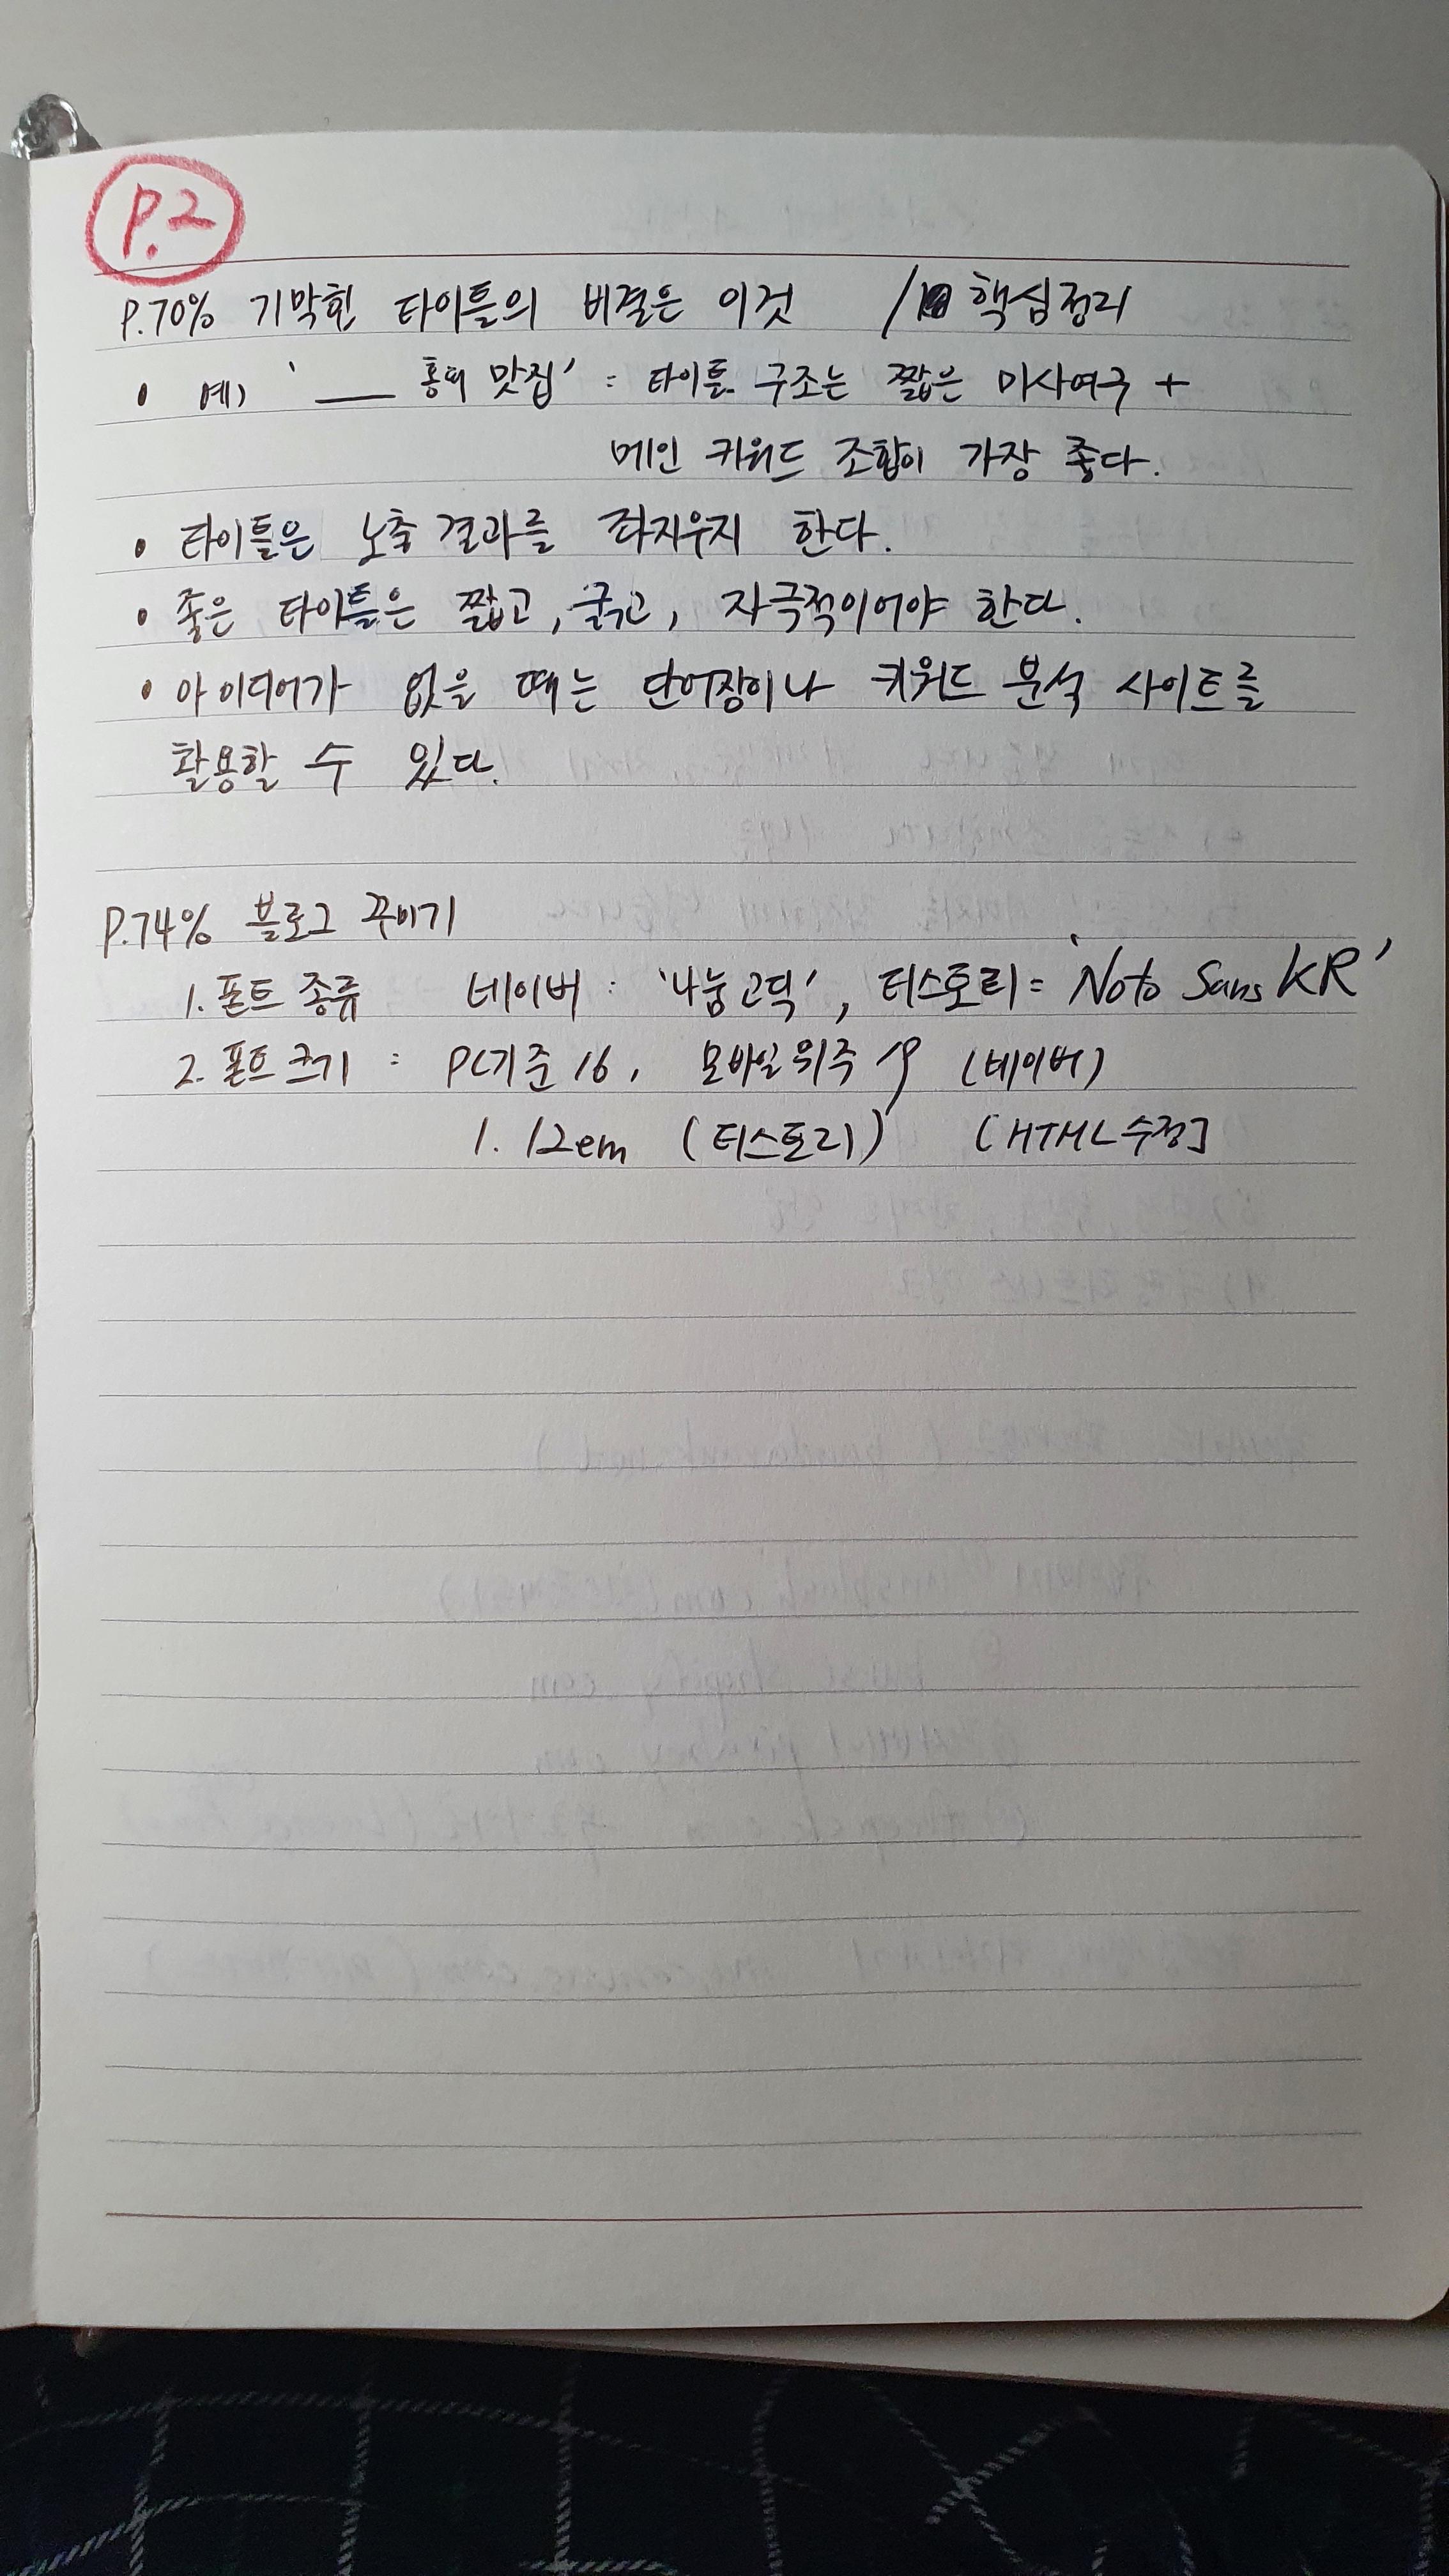 P.2
P.70% 기막힌 타이틀의 비결은 이것 / 핵심정리
• 예) '___ 홍대 맛집' : 타이틀 구조는 짧은 미사여구 +
메인 키워드 조합이 가장 좋다.
• 타이틀은 노출 결과를 좌지우지 한다.
• 좋은 타이틀은 짧고, 굵고, 자극적이어야 한다.
• 아이디어가 없을 때는 단어장이나 키워드 분석 사이트를
활용할 수 있다.
P.74% 블로그 꾸미기
1. 폰트 종류 네이버 : '나눔고딕', 티스토리 = 'Noto Sans KR'
2. 폰트 크기 : PC기준 16, 모바일 위주 19 (네이버)
1.12em (티스토리) [HTML 수정]